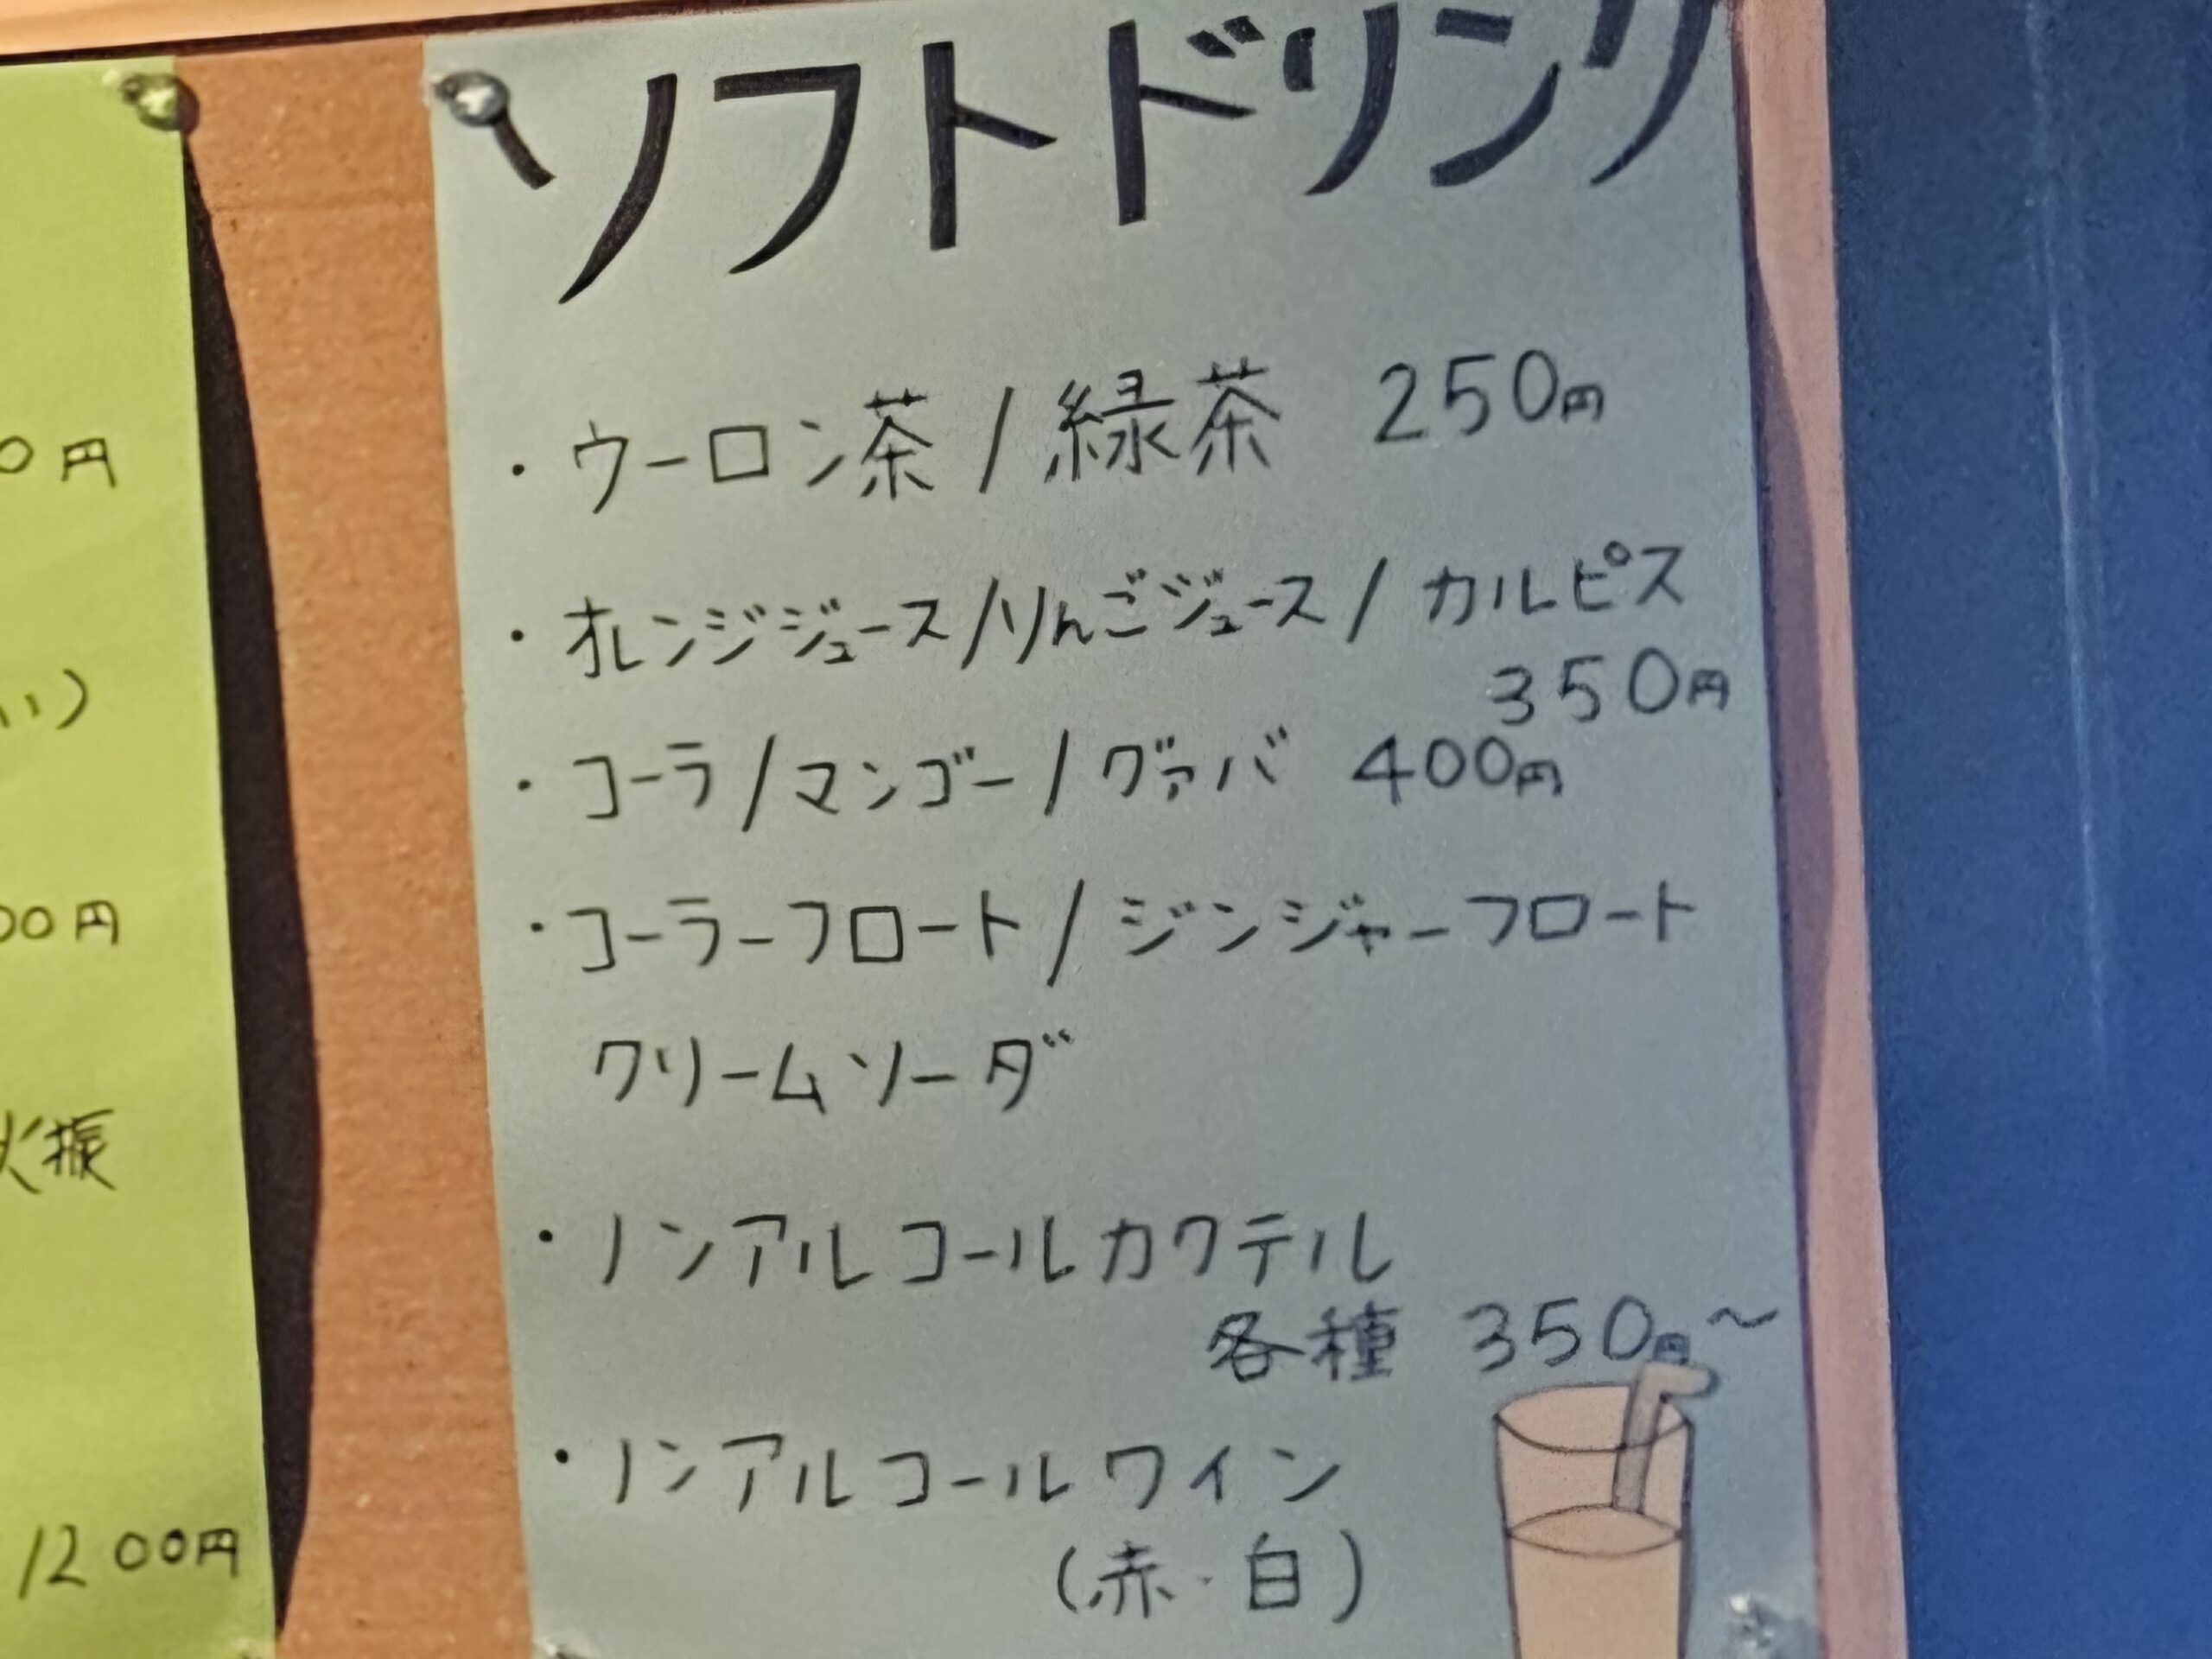 ソフトドリンク
・ウーロン茶/緑茶 250円
・オレンジジュース/りんごジュース/カルピス
350円
・コーラ/マンゴー/グァバ 400円
・コーラーフロート/ジンジャーフロート
クリームソーダ
・ノンアルコールカクテル
各種 350円~
・ノンアルコールワイン
(赤・白)
0円
い)
00円
振
1200円